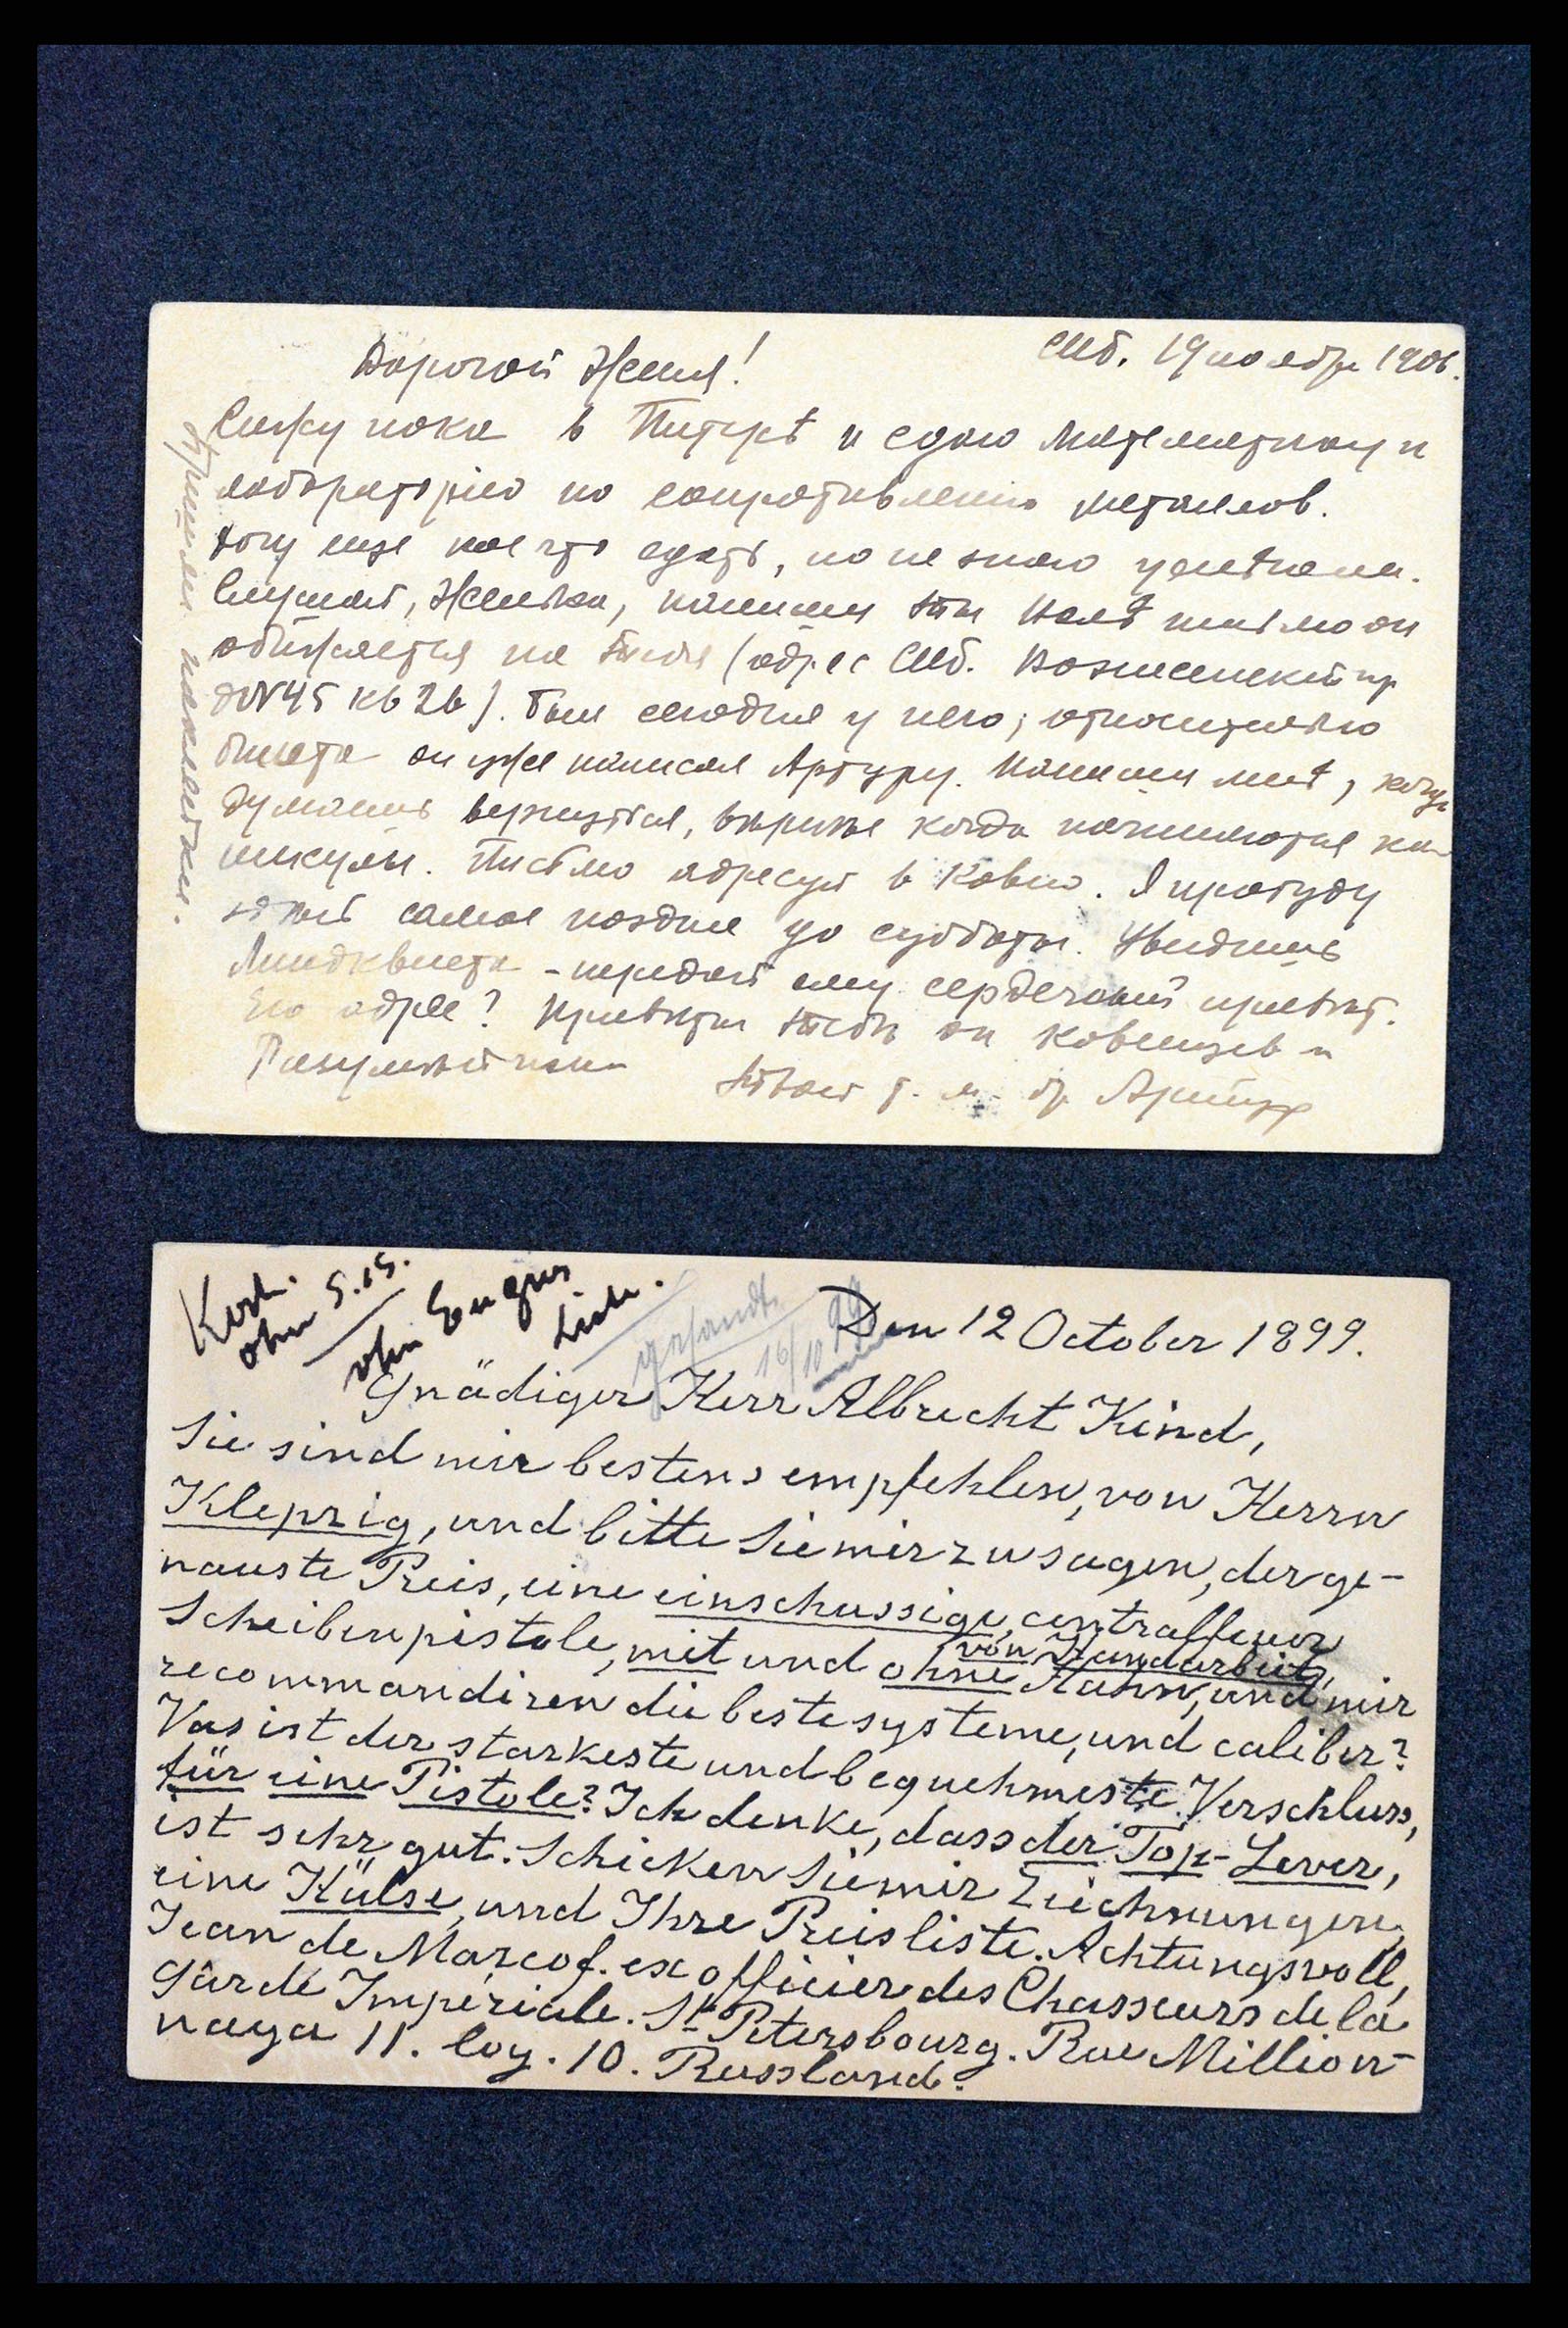 Дорогой Женя!
СПб. 19 ноября 1906.
Сижу пока в Питерѣ и сдаю математику и
лабораторiю по сопротивленiю металлов.
Хочу еще кое что сдать, но не знаю
Слушай, Женька, напиши ты письмо он
обижается на тебя (адрес СПб. Вознесенский пр
д N45 кв 26). Был сегодня у него; относительно
билета он уже написал Артуру. Напиши мнѣ, когда
думаешь вернуться, вѣрнѣе когда начинаются ка-
никулы. Письмо адресуй в Ковно. Я пробуду
здѣсь самое позднее до субботы. Увидишь
Линдквиста - передай ему сердечный привѣт.
Его адрес? Привѣты тебѣ от ковенцев и
Твой т. м. бр Артур
Den 12 October 1899.
gesandt
16/10 99
Gnädiger Herr Albrecht Kind,
Sie sind mir bestens empfehlen, von Herrn
Kleprig, und bitte Sie mir zu sagen, der ge-
nauste Preis, eine einschussige, centralfeuer
von Handarbeit,
Scheibenpistole, mit und ohne Hahn, und mir
recommandiren die beste systeme, und caliber?
Vas ist der starkeste und bequehmeste Verschluss,
für eine Pistole? Ich denke, dass der Top-Lever,
ist sehr gut. Schicken Sie mir Zeichnungen,
eine Hülse, und Ihre Preisliste. Achtungsvoll,
Jean de Marcof. ex officier des Chasseurs de la
Garde Imperiale. St Petersbourg. Rue Million-
naya 11. log. 10. Russland.